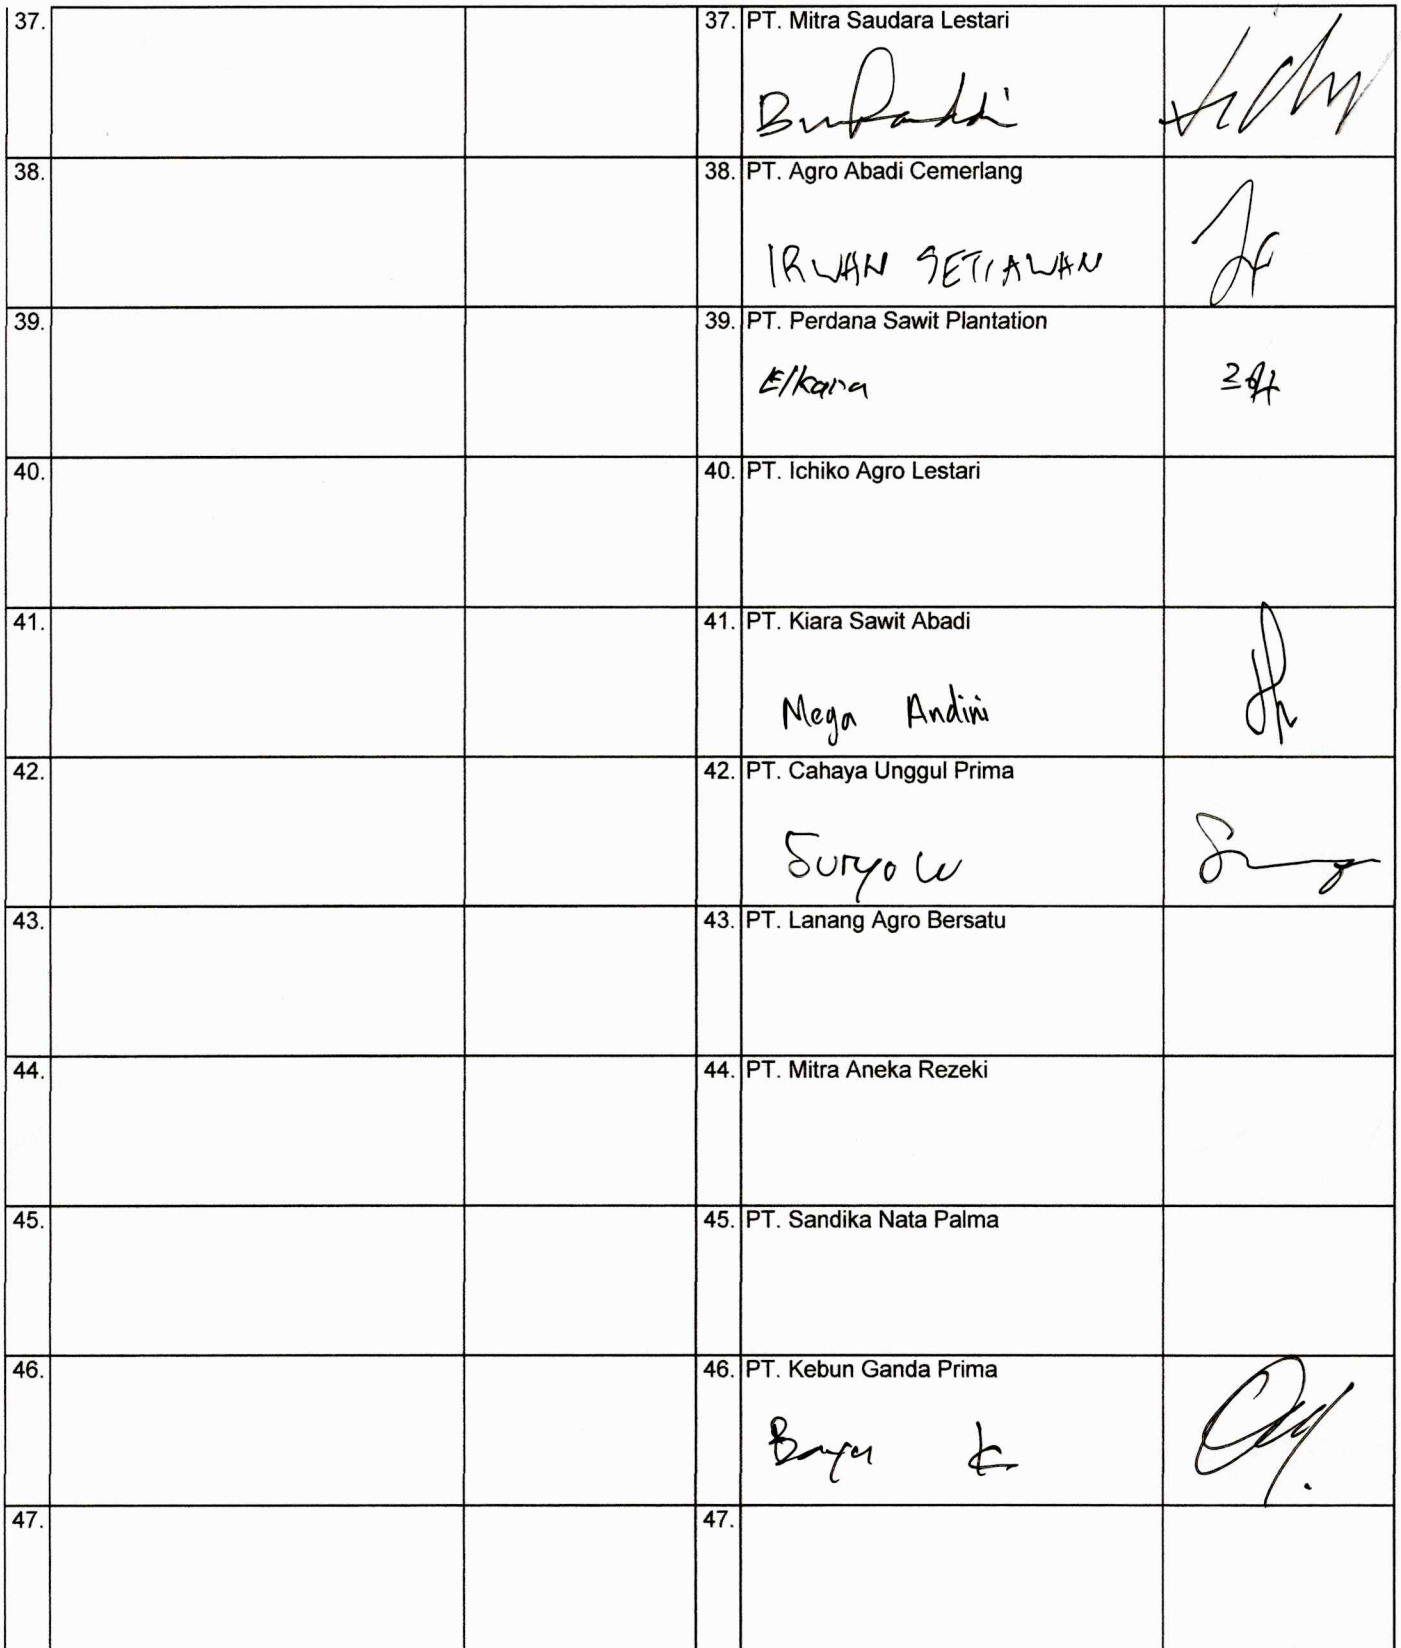 37. 37. PT. Mitra Saudara Lestari
38. 38. PT. Agro Abadi Cemerlang
IRWAN SETIAWAN
39. 39. PT. Perdana Sawit Plantation
Elkana
40. 40. PT. Ichiko Agro Lestari
41. 41. PT. Kiara Sawit Abadi
Mega Andini
42. 42. PT. Cahaya Unggul Prima
Suryo W
43. 43. PT. Lanang Agro Bersatu
44. 44. PT. Mitra Aneka Rezeki
45. 45. PT. Sandika Nata Palma
46. 46. PT. Kebun Ganda Prima
Bayu K
47. 47.